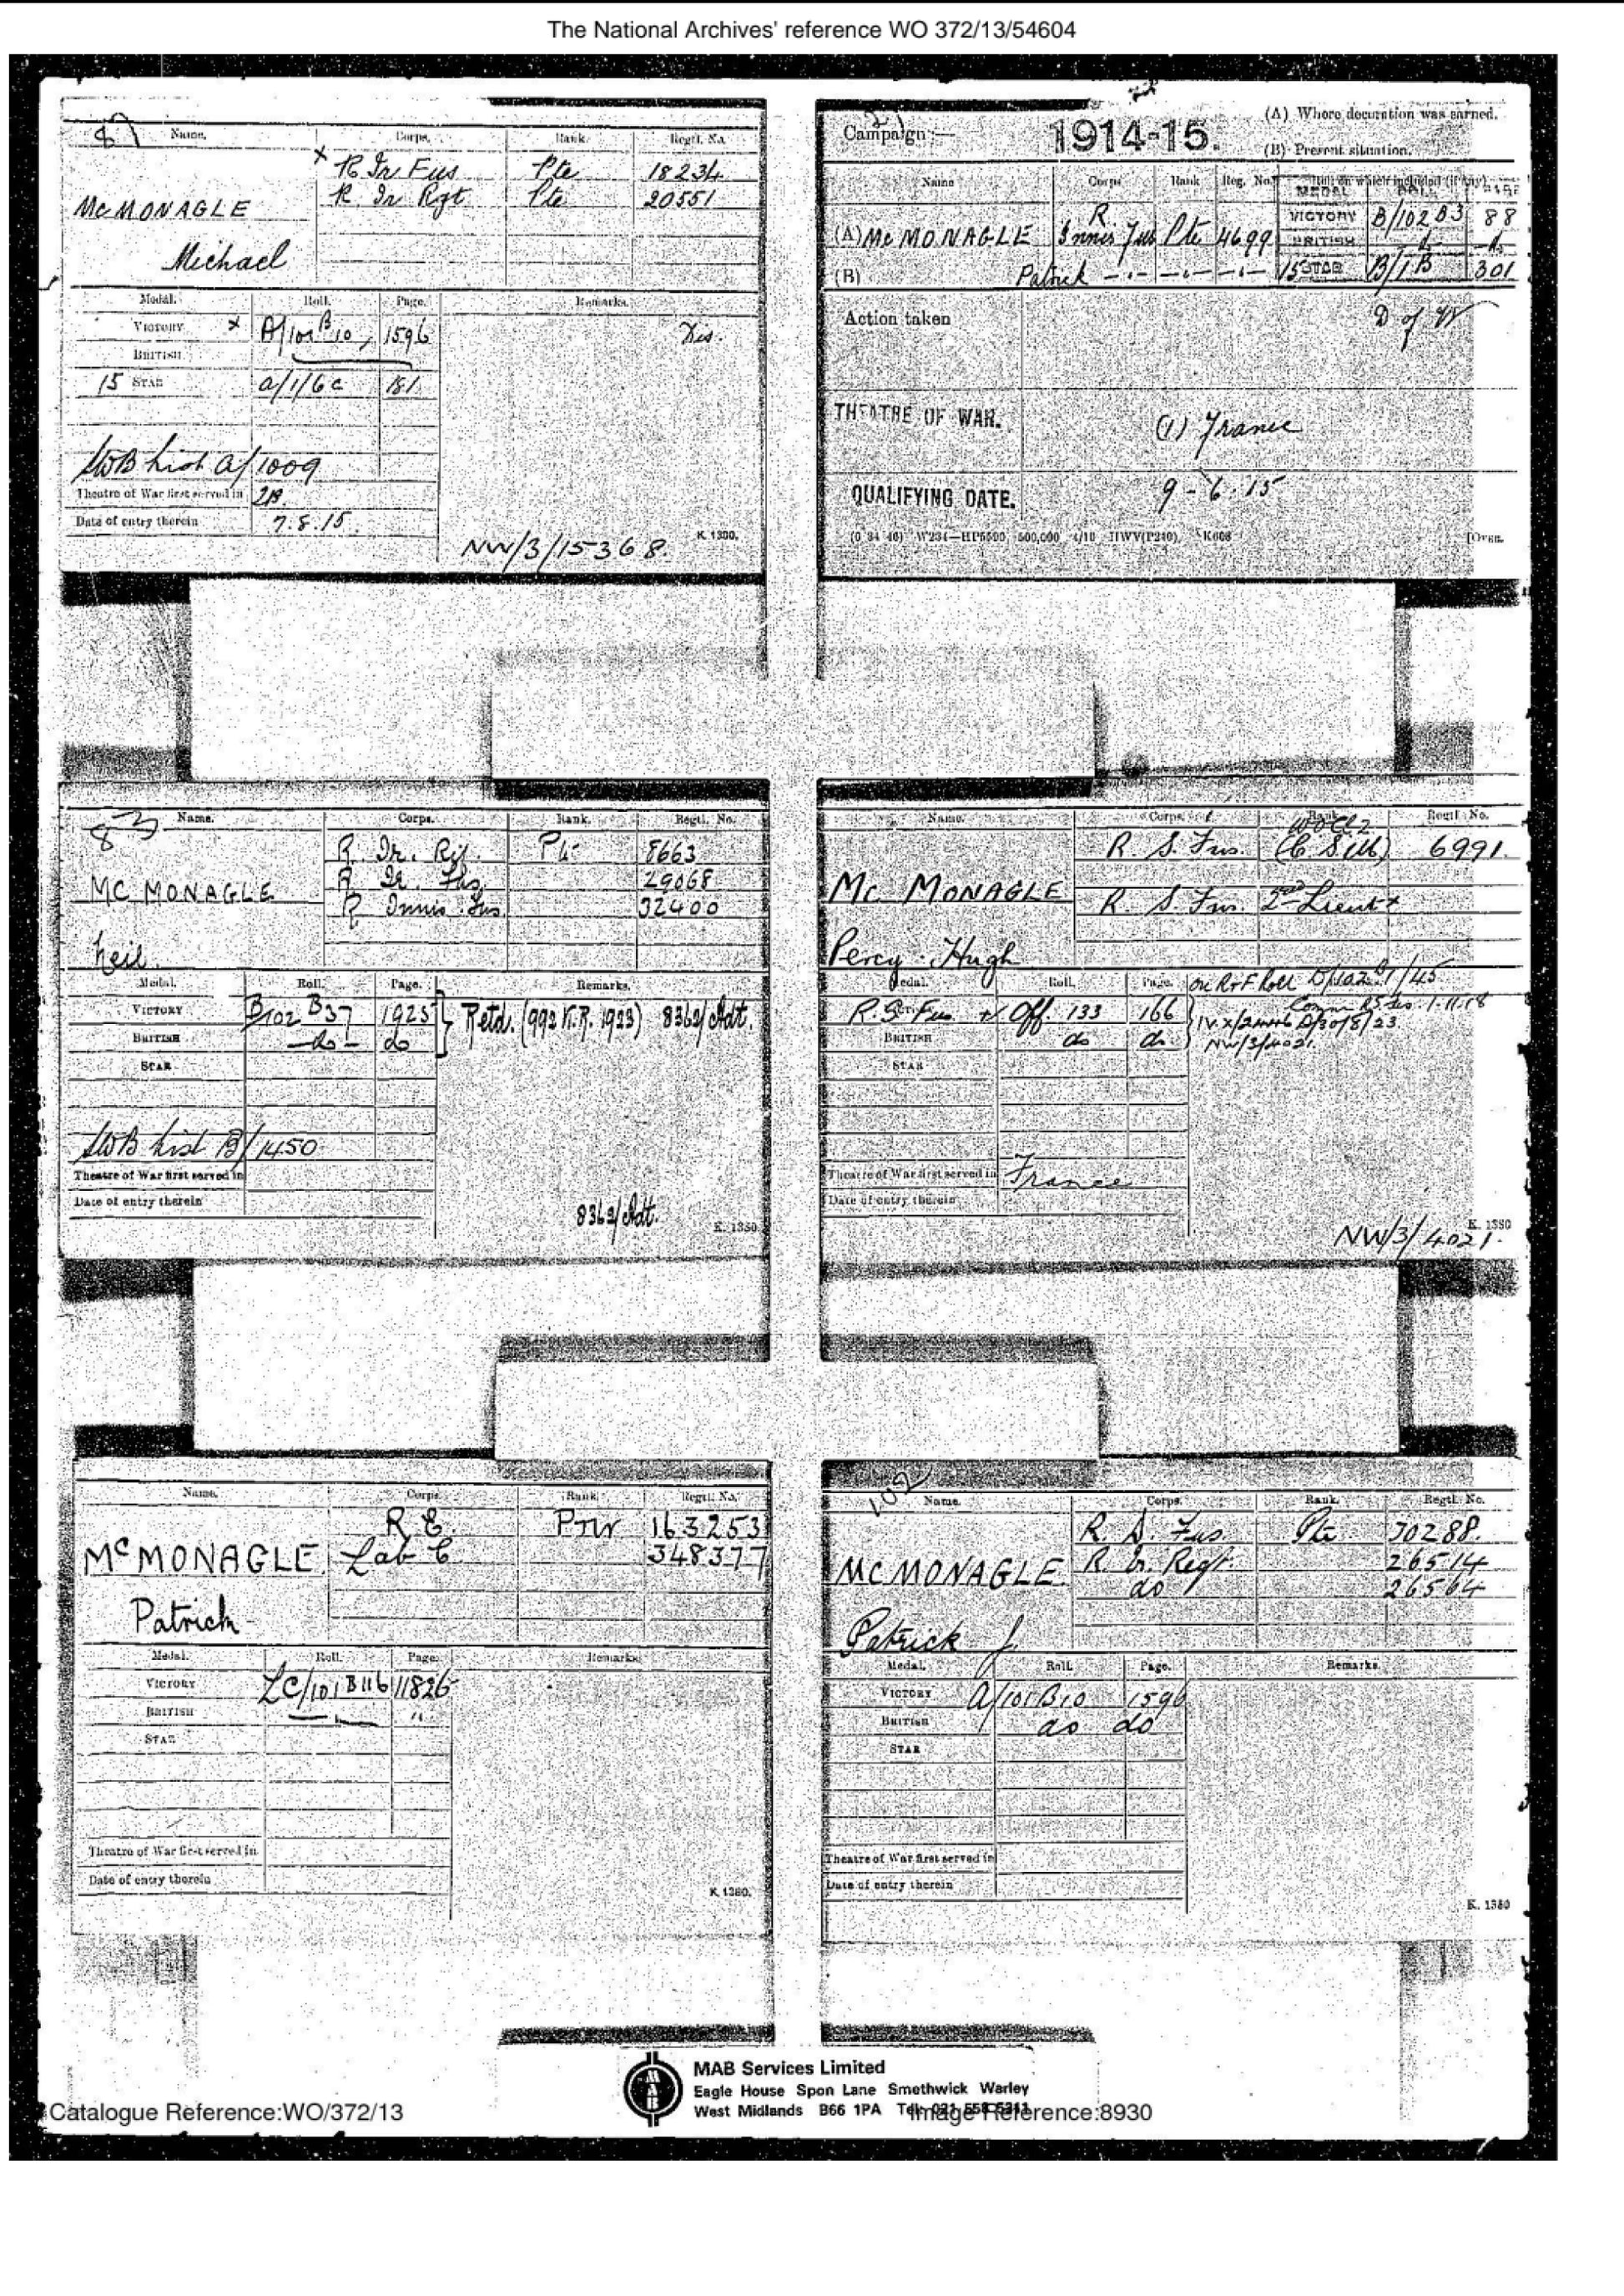 The National Archives' reference WO 372/13/54604
Name. Corps. Rank. Regtl. No.
x R Ir Fus Pte 18234
McMONAGLE R. Ir Rgt Pte 20551
Michael
Medal. Roll. Page. Remarks.
VICTORY x A/101 B10, 1596 Dis.
BRITISH
15 STAR a/1/6c 181
SWB List a/1009
Theatre of War first served in 2B.
Date of entry therein 7.8.15.
NW/3/15368 K. 1380.
Campaign:— 1914-15. (A) Where decoration was earned.
(B) Present situation.
Name Corps Rank Reg. No. Roll on which included (if any)
MEDAL ROLL PAGE
VICTORY B/102 B3 88
(A) McMONAGLE R. Innis Fus Pte 4699 BRITISH do do
(B) Patrick —"— —"— —"— 15 STAR B/1B 301
Action taken D of W
THEATRE OF WAR. (1) France
QUALIFYING DATE. 9-6-15
[OVER.
Name. Corps. Rank. Regtl. No.
R. Ir. Rif. Pte 8663
MC MONAGLE R Ir. Fus 29068
R Innis Fus. 32400
Neil.
Medal. Roll. Page. Remarks.
VICTORY B/102 B37 1925 Retd. (992 K.R. 1923) 8362/Adt.
BRITISH —do— do
STAR
SWB List B/1450
Theatre of War first served in
Date of entry therein
8362/Adt. K. 1380
Name. Corps. Rank Regtl. No.
WO Cl 2
R. S. Fus. (C S M) 6991.
Mc MONAGLE R. S. Fus. 2nd Lieut x
Percy Hugh
Medal. Roll. Page. on R & F Roll
R. S. Fus Off. 133 166
BRITISH do do. NW/3/4021.
STAR
Theatre of War first served in France
Date of entry therein
K. 1380
NW/3/4021.
Name. Corps. Rank. Regtl. No.
R E. Pnr 163253
McMONAGLE. Lab C 348377
Patrick
Medal. Roll. Page. Remarks.
VICTORY LC/101 B116 11826
BRITISH —"— "
STAR
Theatre of War first served in
Date of entry therein
K. 1380.
102
Name. Corps. Rank. Regtl. No.
R. D. Fus. Pte 30288.
MCMONAGLE. R. Ir. Regt. 26514
do 26564
Patrick J.
Medal. Roll. Page. Remarks.
VICTORY A/101 B10 1596
BRITISH do do
STAR
Theatre of War first served in
Date of entry therein
K. 1380
MAB
MAB Services Limited
Eagle House Spon Lane Smethwick Warley
West Midlands B66 1PA Tel: 021 558 5311
Catalogue Reference:WO/372/13 Image Reference:8930